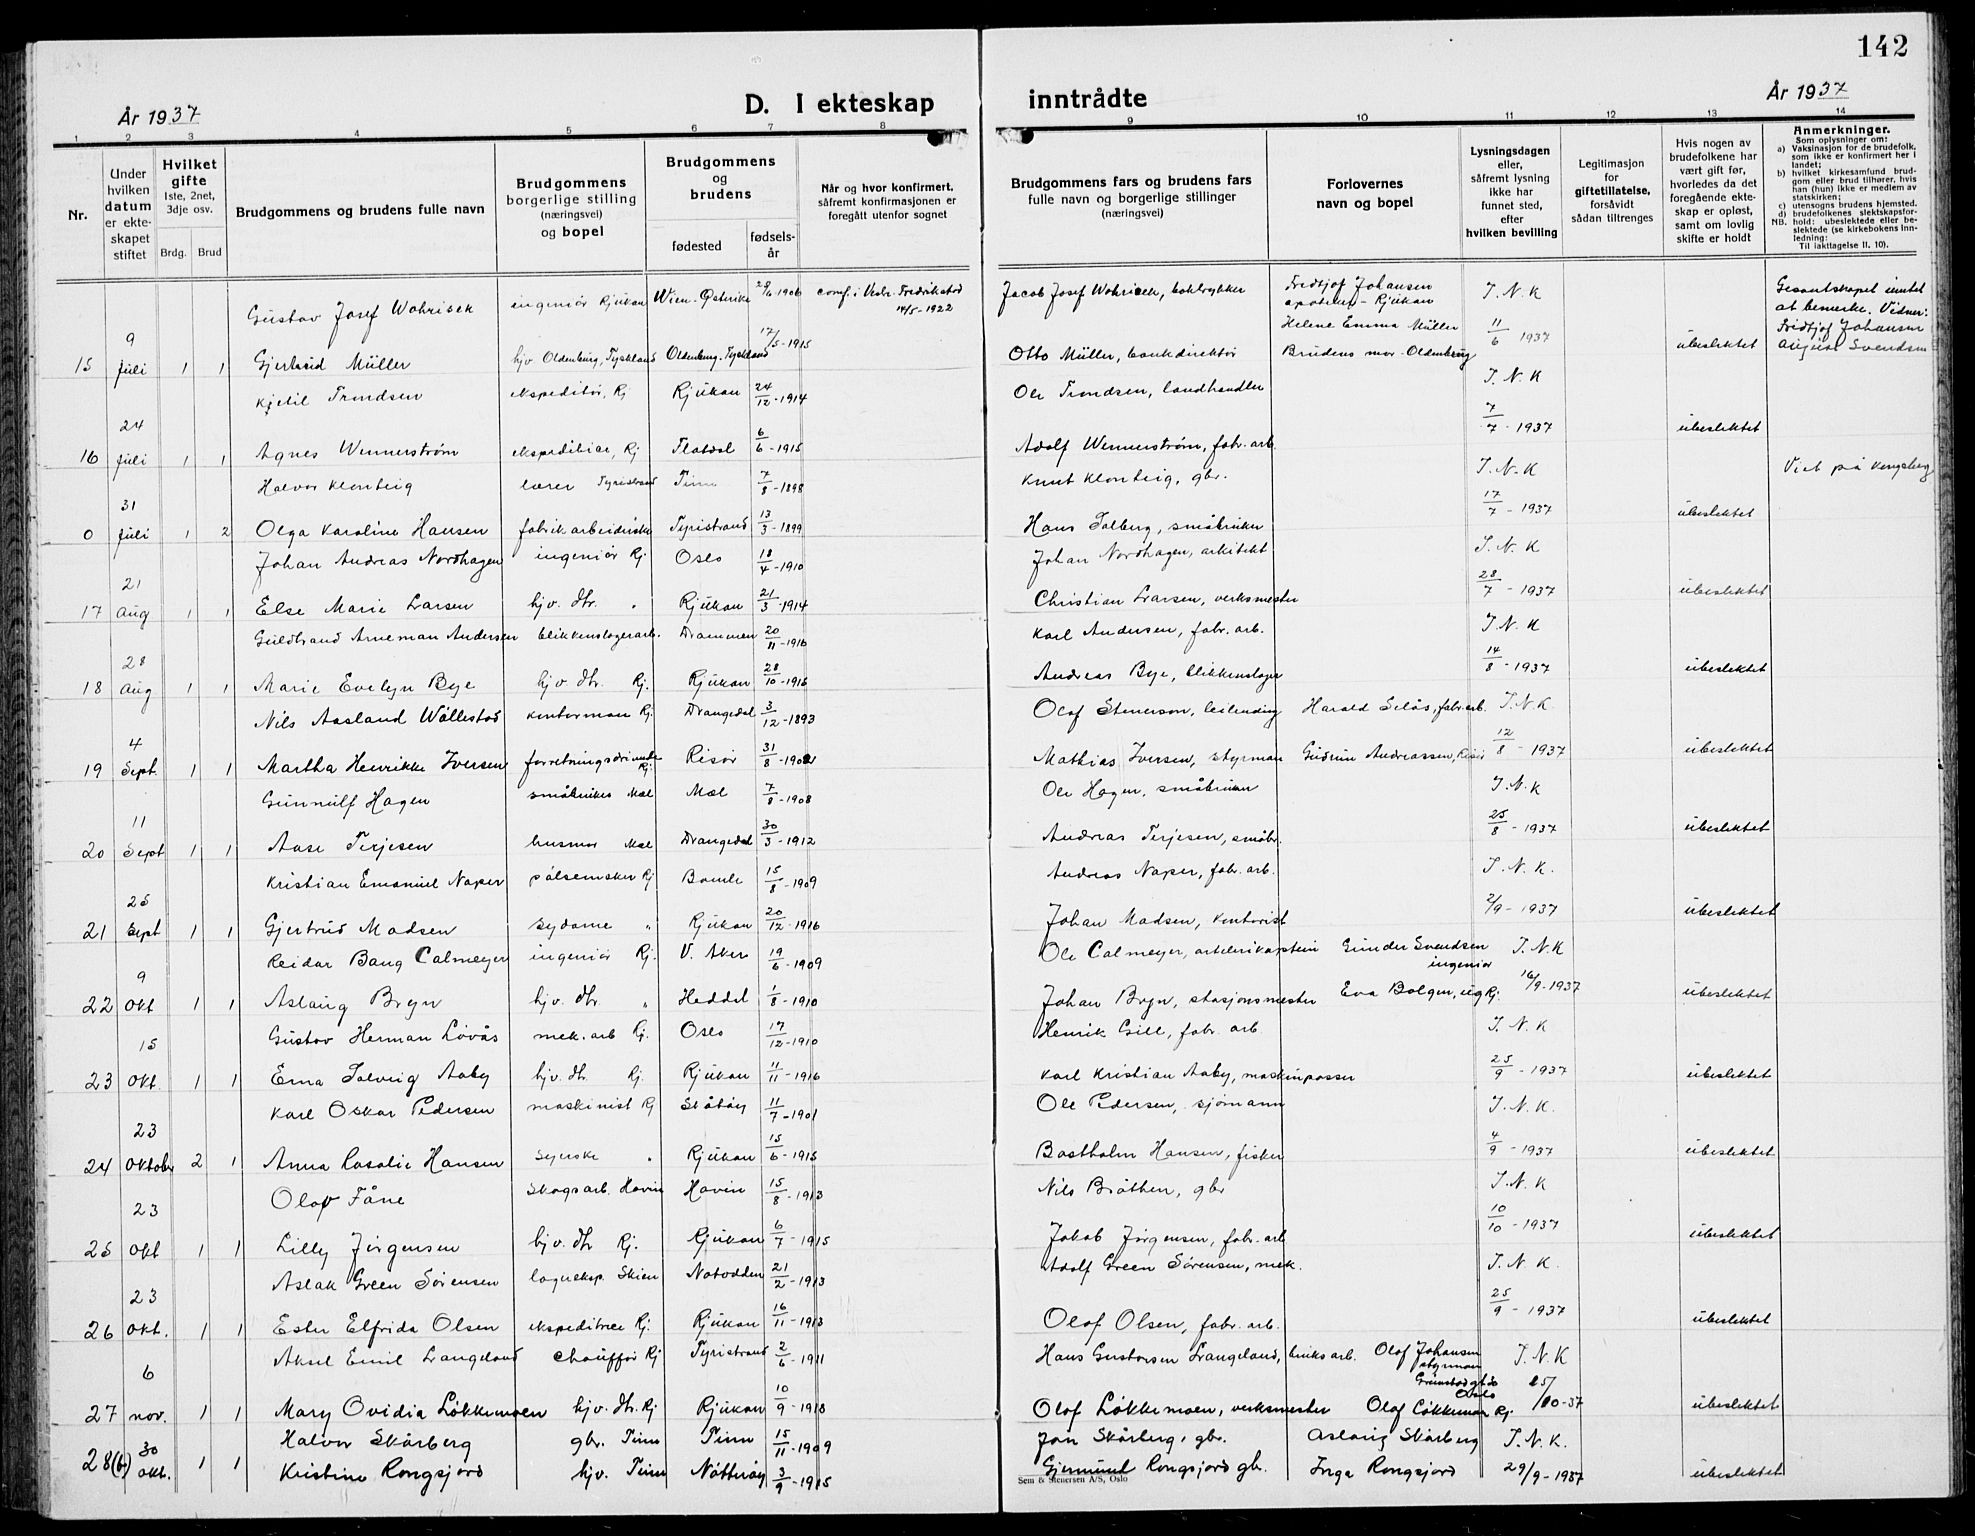 142
År 1937
D. I ekteskap inntrådte
År 1937
1 2 3 4 5 6 7 8 9 10 11 12 13 14
Nr.
Under hvilken datum er ekteskapet stiftet
Hvilket gifte
1ste, 2net, 3dje osv.
Brdg. Brud
Brudgommens og brudens fulle navn
Brudgommens borgerlige stilling (næringsvei) og bopel
Brudgommens og brudens
fødested
fødselsår
Når og hvor konfirmert, såfremt konfirmasjonen er foregått utenfor sognet
Brudgommens fars og brudens fars fulle navn og borgerlige stillinger (næringsvei)
Forlovernes navn og bopel
Lysningsdagen eller, såfremt lysning ikke har funnet sted, efter hvilken bevilling
Legitimasjon for giftetillatelse, forsåvidt sådan tiltrenges
Hvis nogen av brudefolkene har vært gift før, hvorledes da det foregående ekteskap er opløst, samt om lovlig skifte er holdt
Anmerkninger.
Som oplysninger om:
a) Vaksinasjon for de brudefolk, som ikke er konfirmert her i landet;
b) hvilket kirkesamfund brudgom eller brud tilhører, hvis han (hun) ikke er medlem av statskirken;
c) utensogns brudens hjemsted.
d) brudefolkenes slektskapsforhold: ubeslektede eller beslektede (se kirkebokens innledning:
NB. Til iakttagelse II. 10).
Gustav Josef Wohrisek ingeniør Rjukan Wien-Østerike 28/6-1906 conf. i Vestr. Fredrikstad 14/5-1922 Jacob Josef Wohrisek, boktrykker Fredtjof Johansen apoteker - Rjukan I.N.K Gesantskapet intet at bemerke. Vidner: Fridtjof Johansen August Svendsen
15 9 Juli 1 1 Gjertrud Müller hjv Oldenburg, Tyskland Oldenburg-Tyskland 17/5-1915 Otto Müller, bankdirektør Helene Emma Müller Brudens mor-Oldenburg 11/6 1937 ubeslektet
Kjetil Trondsen ekspeditør, Rj Rjukan 24/12-1914 Ole Trondsen, landhandler I.N.K
16 24 Juli 1 1 Agnes Wennerstrøm ekspeditrise, Rj Flatdal 6/6-1915 Adolf Wennerstrøm, fabr. arb. 7/7-1937 ubeslektet
Halvor Klonteig lærer Tyristrand Tinn 7/8-1898 Knut Klonteig, gbr. I.N.K Viet på Kongsberg
0 31 Juli 1 2 Olga Karoline Hansen fabrikarbeiderske Tyristrand 13/3-1899 Hans Solberg, småbruker 17/7-1937 ubeslektet
Johan Andreas Nordhagen ingeniør Rj Oslo 18/4-1910 Johan Nordhagen, arkitekt I.N.K
17 21 Aug 1 1 Else Marie Larsen hjv. dtr. " Rjukan 21/3-1914 Christian Larsen, verksmester 28/7-1937 ubeslektet
Guldbrand Arneman Andersen blikkenslagerarb. Drammen 20/11-1916 Karl Andersen, fabr. arb. I.N.K
18 28 Aug 1 1 Marie Evelyn Bye hjv. dtr. Rj. Rjukan 28/10-1915 Andreas Bye, blikkenslager 14/8-1937 ubeslektet
Nils Aasland Wöllestad kontorman Rj. Drangedal 3/12-1893 Olaf Stenerson, leilending Harald Selås, fabr. arb. I.N.K.
19 4 Sept. 1 1 Martha Henrikke Iversen forretningsdrivende Rj. Risør 31/8-1902 Mathias Iversen, styrman Gudrun Andreassen, Risør 12/8-1937 ubeslektet
Gunnulf Hagen småbruker Mæl Mæl 7/8-1908 Ole Hagen, småbruker I.N.K
20 11 Sept 1 1 Aase Terjesen husmor Mæl Drangedal 30/3-1912 Andreas Terjesen, småbr. 25/8-1937 ubeslektet
Kristian Emanuel Naper pølsemaker Rj Bamle 15/8-1909 Andreas Naper, fabr. arb. I.N.K.
21 25 Sept 1 1 Gjertrud Madsen sydame " Rjukan 20/12-1916 Johan Madsen, kontorist 2/9-1937 ubeslektet
Reidar Bang Calmeyer ingeniør Rj. V. Aker 19/6-1909 Ole Calmeyer, artellerikaptein Gunder Svendsen ingeniør I.N.K
22 9 Okt 1 1 Aslaug Bryn hjv. dtr. " Heddal 1/8-1910 Johan Bryn, stasjonsmester Eva Bolgen, ug Rj. 16/9-1937 ubeslektet
Gustav Herman Løvås mek. arb Rj. Oslo 17/12-1910 Henrik Gill, fabr. arb I.N.K
23 15 Okt. 1 1 Erna Solveig Aaby hjv. dtr. Rj. Rjukan 11/11-1916 Karl Kristian Aaby, maskinpasser 25/9-1937 ubeslektet
Karl Oskar Pedersen maskinist Rj Skåtøy 11/7-1901 Ole Pedersen, sjømann I.N.K.
24 23 Oktober 2 1 Anna Rosalie Hansen syerske " Rjukan 15/6-1915 Bastholm Hansen, fisker 4/9-1937 ubeslektet
Olav Fåne Skogsarb. Hovin Hovin 15/8-1913 Nils Bråthen, gbr I.N.K
25 23 Okt 1 1 Lilly Jørgensen hjv. dtr Rj. Rjukan 6/7-1915 Jakob Jørgensen, fabr. arb 10/10-1937 ubeslektet
Aslak Green Sørensen lagereksp. Skien Notodden 21/2-1913 Adolf Green Sørensen, mek. I.N.K.
26 23 Okt. 1 1 Ester Elfrida Olsen ekspeditrice Rj. Rjukan 16/11-1913 Olaf Olsen, fabr. arb. 25/9-1937 ubeslektet
Aksel Emil Langeland chauffør Rj Tyristrand 2/6-1911 Hans Gustavsen Langeland, bruksarb. Olaf Johansen styrman Grünstadgt Oslo I.N.K
27 6 nov. 1 1 Mary Ovidia Løkkemoen hjv. dtr. Rj Rjukan 10/9-1913 Olaf Løkkemoen, verksmester Olaf Løkkemoen Rj. 25/10-37 ubeslektet
Halvor Skårberg gbr. Tinn Tinn 15/11-1909 Jon Skårberg, gbr. Aslaug Skårberg I.N.K.
28(b) 30 okt. 1 1 Kristine Rongsjord hjv. Tinn Nøtterøy 3/9-1915 Gjermund Rongsjord gbr. Inga Rongsjord 29/9-1937 ubeslektet
Sem & Stenersen A/S, Oslo